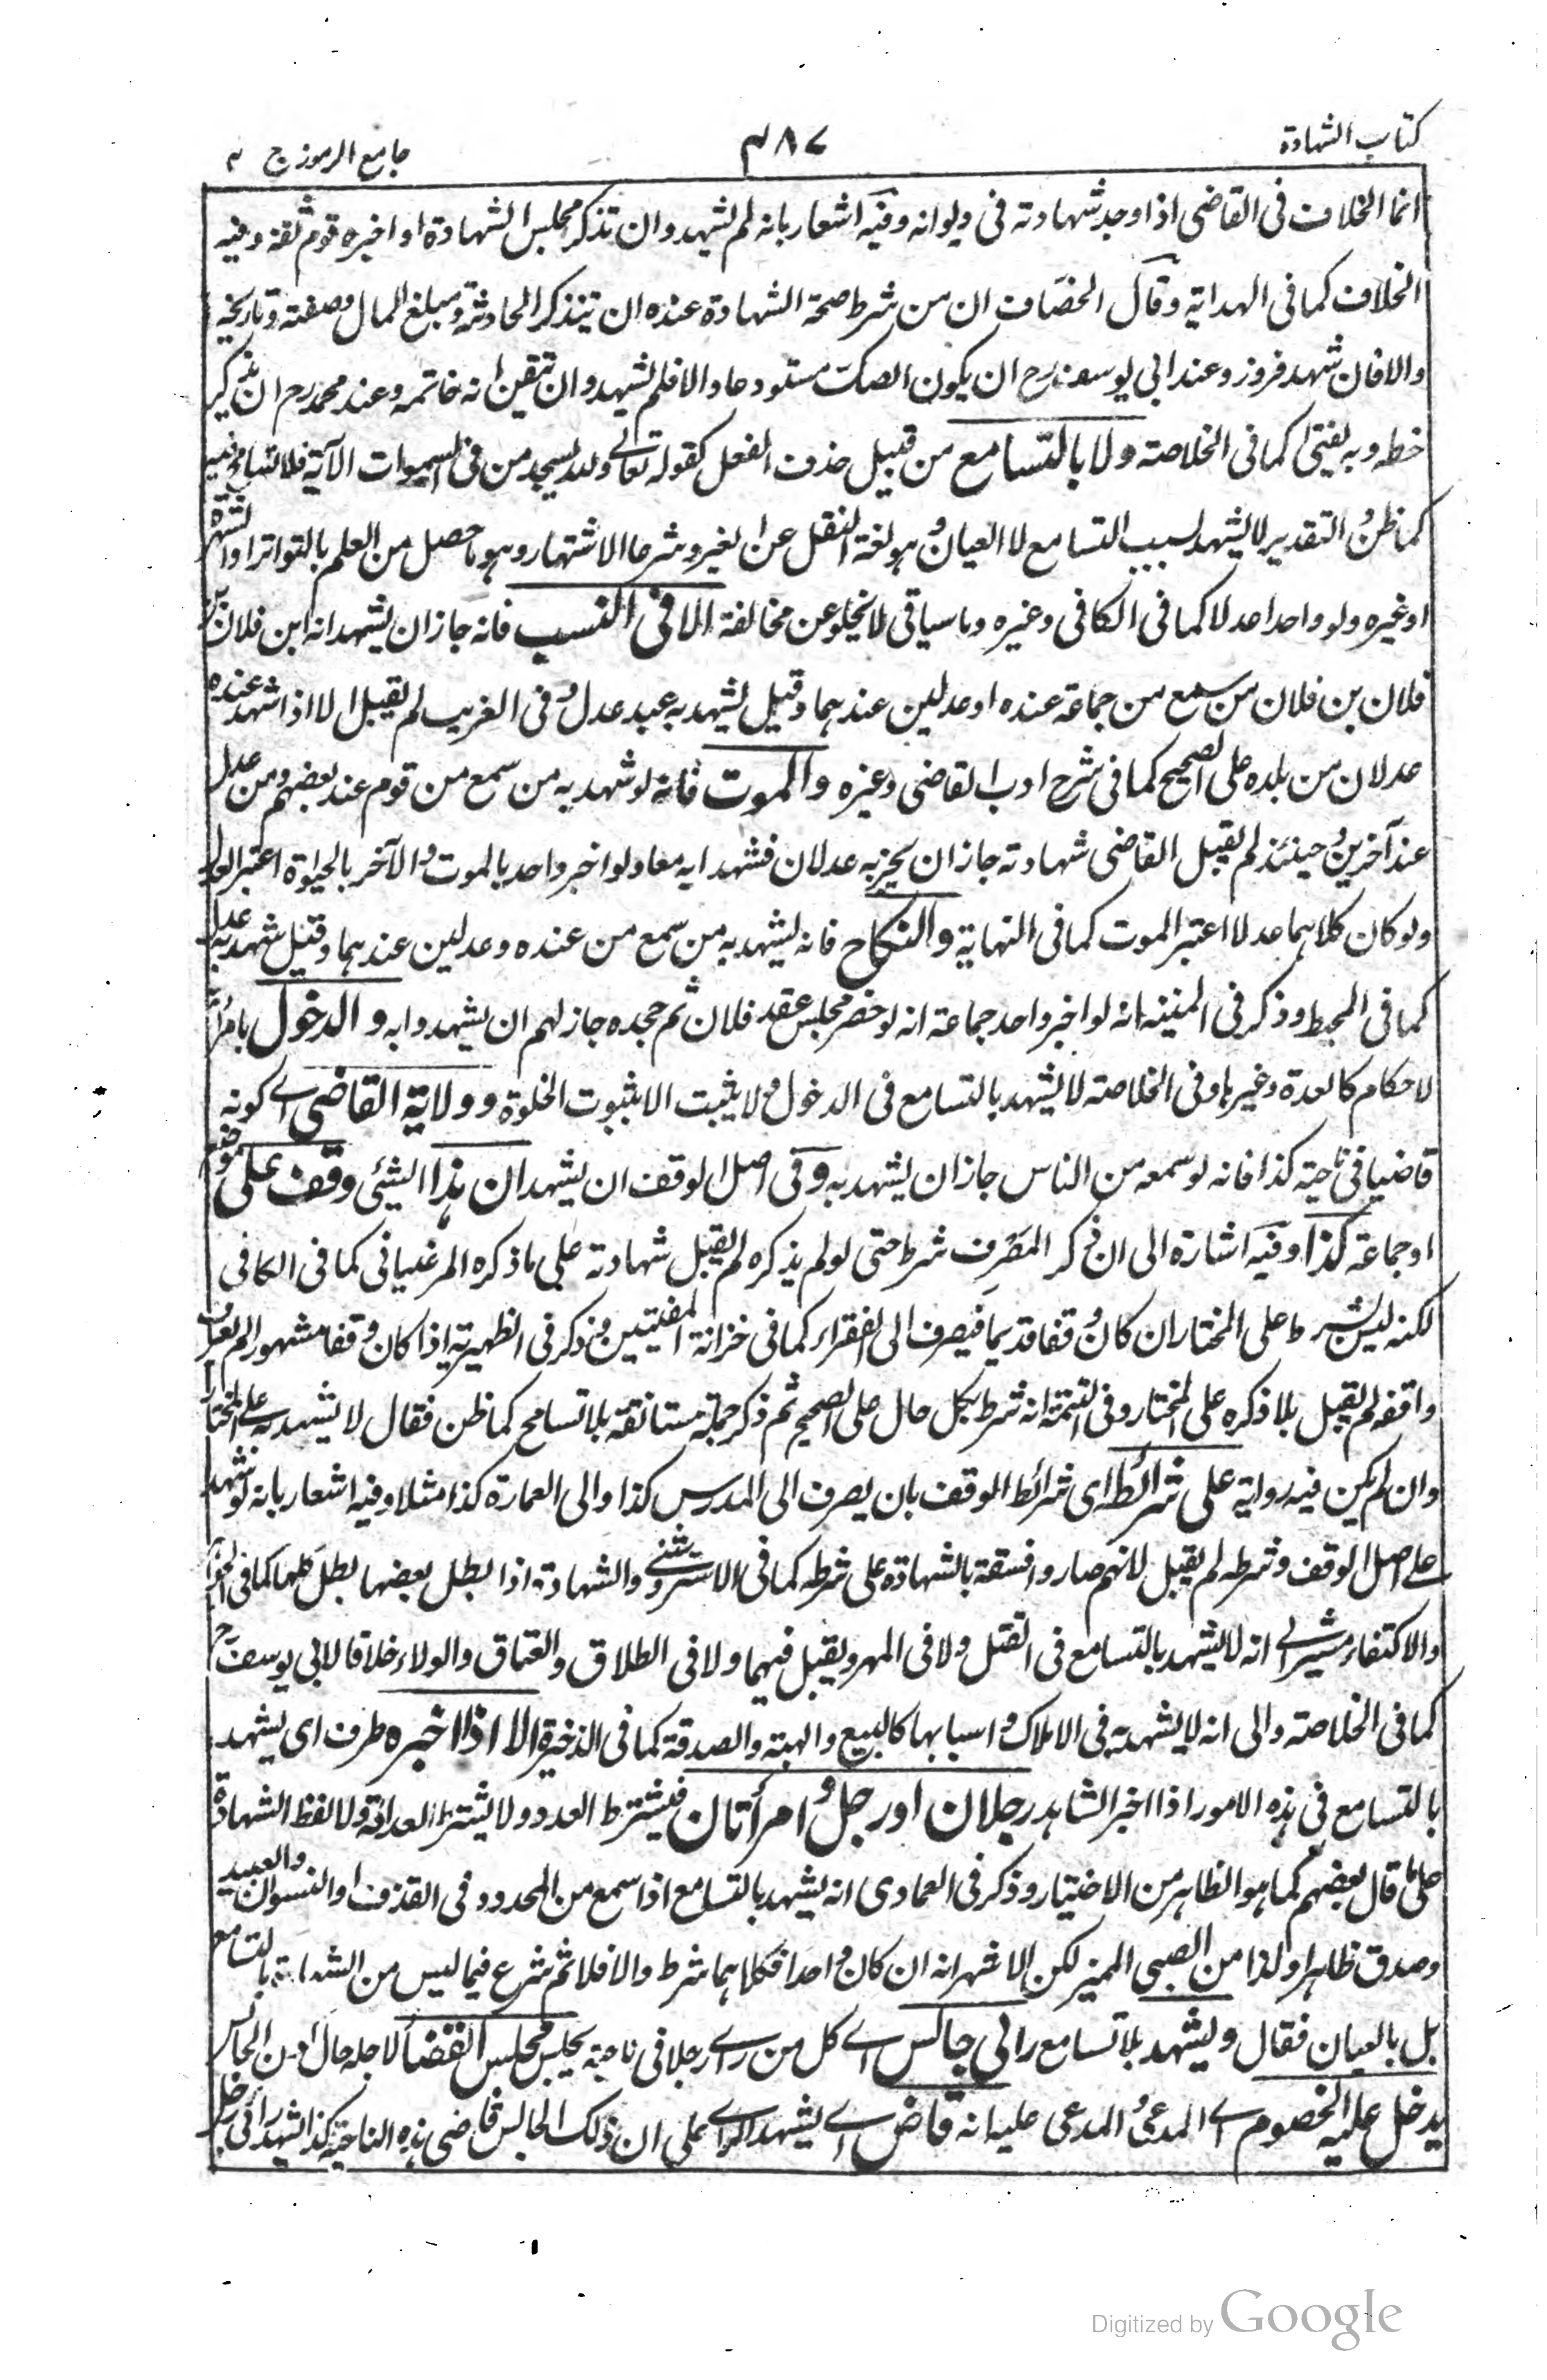 كتاب الشهادة
٤٨٧
جامع الرموز ج ٢
انما الخلاف فى القاضى اذا وجد شهادته فى ديوانه وفيه اشعار بانه لم يشهد وان تذكر مجلس الشهادة او اخبره قوم ثقة وفيه
الخلاف كما فى الهداية وقال الخصاف ان من شرط صحة الشهادة عنده ان يتذكر الحادثة ومبلغ المال وصفته وتاريخه
والا فان شهد فزور وعند ابى يوسف رح ان يكون الصك مستودعا والا فلم يشهد وان تيقن انه خاتمه وعند محمد رح ان يذكر
خطه وبه يفتى كما فى الخلاصة ولا بالتسامع من قبيل حذف الفعل كقوله تعالى ولله يسجد من فى السموات الآية فلا تسامح فيه
كما ظن التقدير لا يشهد بسبب التسامع لا العيان وهو لغة النقل عن الغير وشرعا الاشتهار وهو ما حصل من العلم بالتواتر او الشهرة
او غيره ولو واحدا عدلا كما فى الكافى وغيره وما سياتى لا يخلو عن مخالفة الا فى النسب فانه جاز ان يشهد انه ابن فلان بن
فلان بن فلان من سمع من جماعة عنده او عدلين عندهما وقيل يشهد به عبد عدل وفى الغريب لم يقبل الا اذا شهد عنده
عدلان من بلده على الصحيح كما فى شرح ادب القاضى وغيره والموت فانه لو شهد به من سمع من قوم عند بعضهم ومن عدل
عند آخرين وحينئذ لم يقبل القاضى شهادته جاز ان يخبر به عدلان فشهدا به معا ولو اخبر واحد بالموت والآخر بالحيوة اعتبر العدل
ولو كان كلاهما عدلا اعتبر الموت كما فى النهاية والنكاح فانه يشهد به من سمع من عنده وعدلين عندهما وقيل شهد به عدل
كما فى المحيط وذكر فى المنية انه لو اخبر واحد جماعة انه لو حضر مجلس عقد فلان ثم جحده جاز لهم ان يشهدوا به والدخول بامرأته
لاحكام كالعدة وغيرها وفى الخلاصة لا يشهد بالتسامع فى الدخول ولا يثبت الا بثبوت الخلوة وولاية القاضى اے كونه
قاضيا فى ناحية كذا فانه لو سمعه من الناس جاز ان يشهد به وفى اصل الوقف ان يشهد ان هذا الشئى وقف على موضع
او جماعة كذا وفيه اشارة الى ان ذكر المصرف شرط حتى لو لم يذكره لم يقبل شهادته على ما ذكره المرغينانى كما فى الكافى
لكنه ليس بشرط على المختار ان كان وقفا قديما فيصرف الى الفقراء كما فى خزانة المفتيين وذكر فى الظهيرية اذا كان وقفا مشهورا لم يعرف
واقفه لم يقبل بلا ذكره على المختار وفى التتمة انه شرط بكل حال على الصحيح ثم ذكر جملة مستانفة بلا تسامح كما ظن فقال لا يشهد به على المختار
وان لم يكن فيه رواية على شرائطه اى شرائط الموقف بان يصرف الى المدرس كذا والى العمارة كذا مثلا وفيه اشعار بانه لو شهد
على اصل الوقف وشرطه لم يقبل لانهم صاروا فسقة بالشهادة على شرطه كما فى الاستروشنى والشهادة اذا بطل بعضها بطل كلها كما فى
والاكتفاء مشير الى انه لا يشهد بالتسامع فى القتل ولا فى المهر ويقبل فيهما ولا فى الطلاق والعتاق والولاء خلافا لابى يوسف رح
كما فى الخلاصة والى انه لا يشهد به فى الاملاك واسبابها كالبيع والهبة والصدقة كما فى الذخيرة الا اذا اخبره ظرف اى يشهد
بالتسامع فى هذه الامور اذا اخبر الشاهد رجلان او رجل وامرأتان فيشترط العدد ولا يشترط العدالة ولا لفظ الشهادة
على ما قال بعضهم كما هو الظاهر من الاختيار وذكر فى العمادى انه يشهد بالتسامع اذا سمع من المحدود فى القذف او النسوان والعبيد
وصدق ظاهرا ولذا من الصبى المميز لكن الاشهر انه ان كان واحدا فكلاهما شرط والا فلا ثم شرع فيما ليس من الشهادة بالتسامع
بل بالعيان فقال ويشهد بلا تسامع رائى جالس اے كل من راے رجلا فى ناحية يجلس مجلس القضا لاجله حال من الجالس
يدخل عليه الخصوم اے المدعى والمدعى عليه انه قاض اے يشهد الرائے على ان ذلك الجالس قاضى هذه الناحية كذا يشهد رائى رجل
Digitized by Google